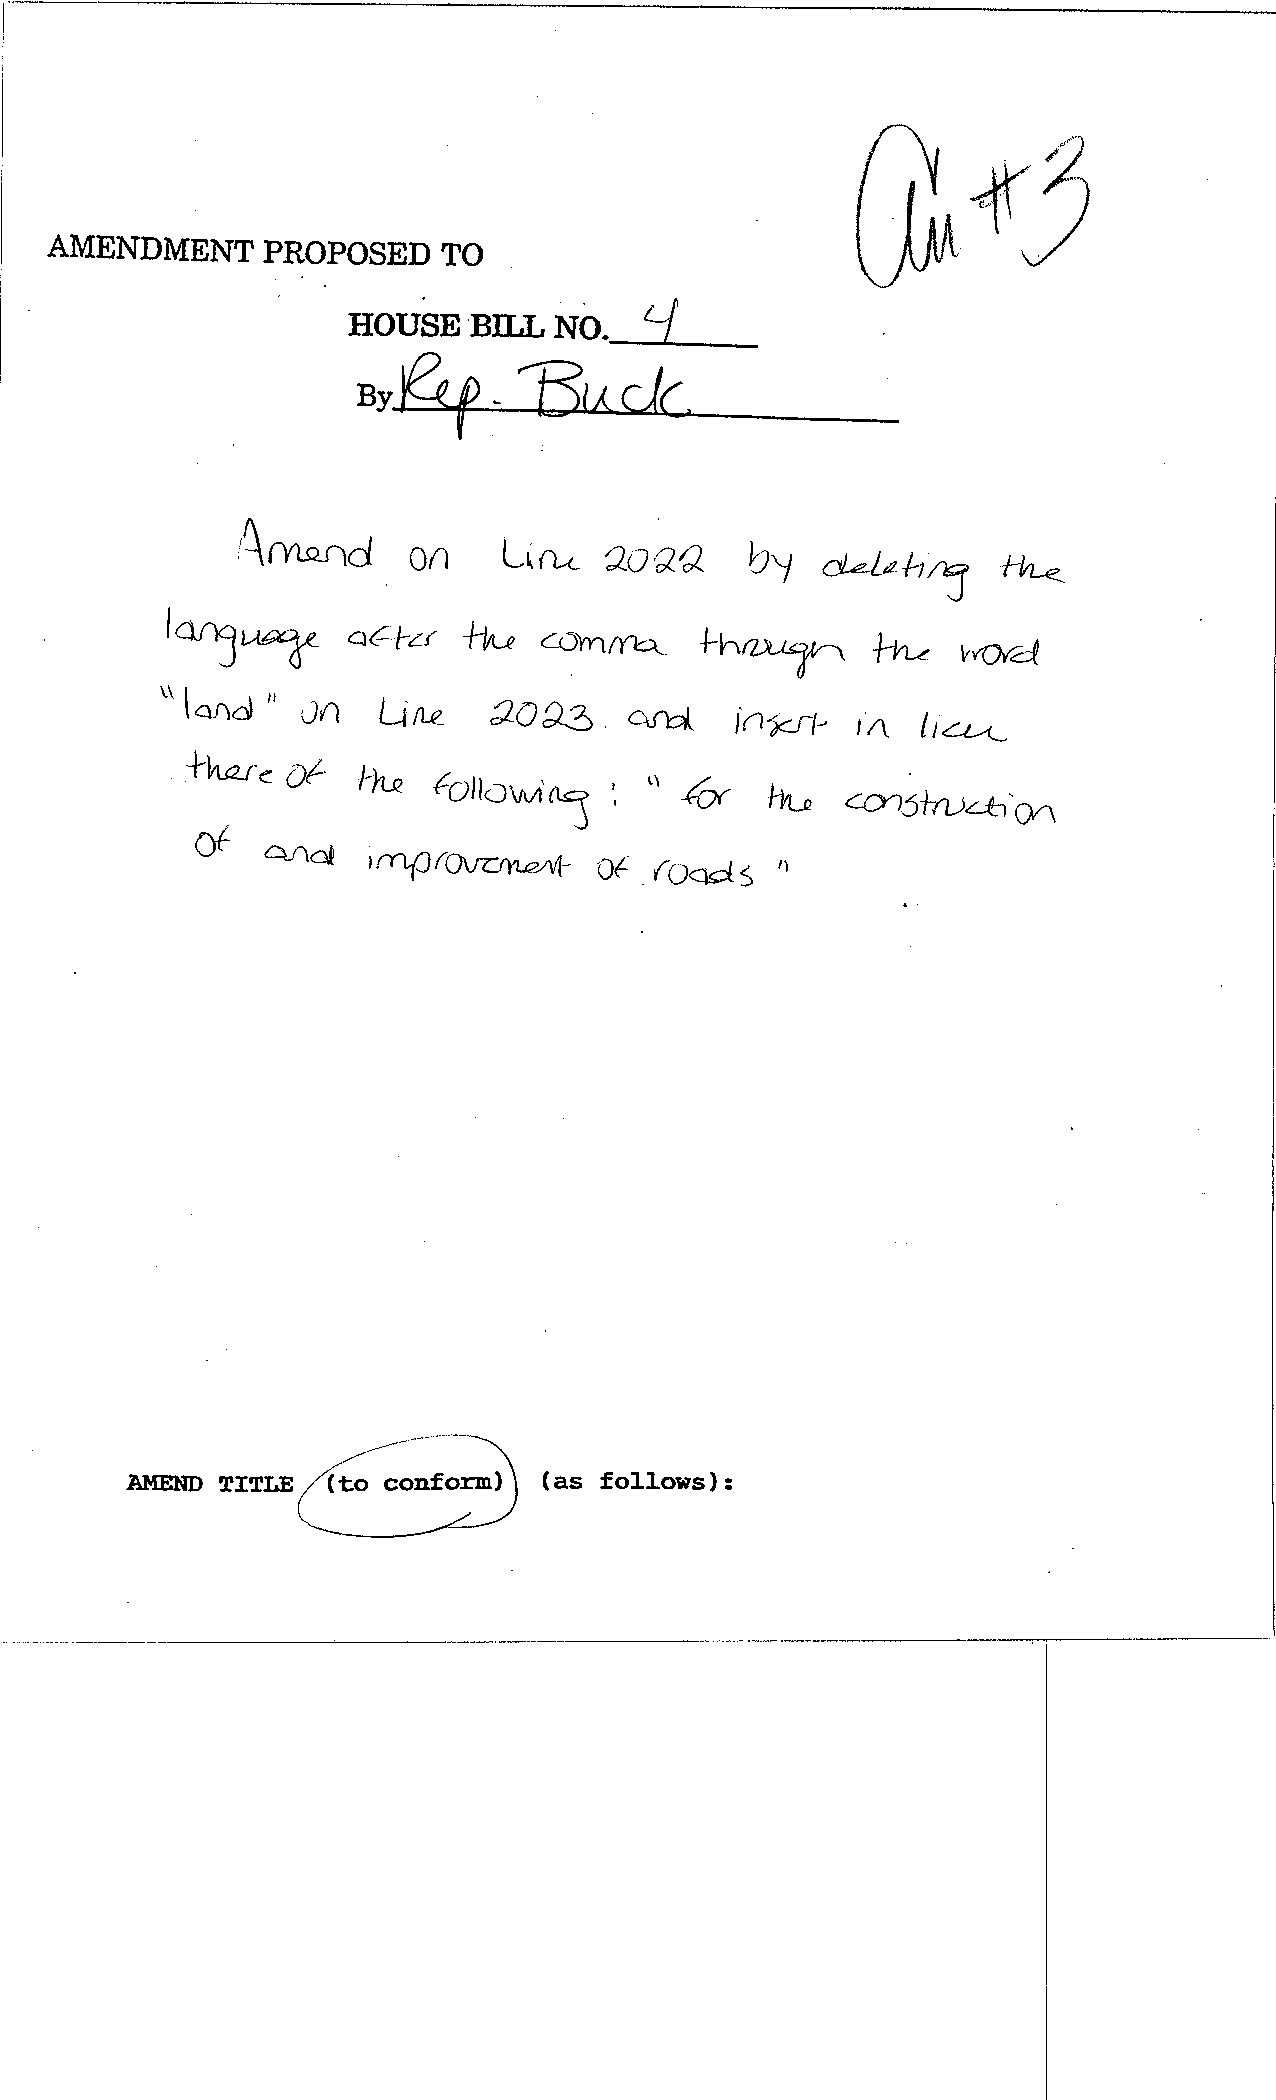 Am #3
AMENDMENT PROPOSED TO
HOUSE BILL NO. 4
By Rep. Buck
Amend on Line 2022 by deleting the
language after the comma through the word
"land" on Line 2023 and insert in lieu
thereof the following: "for the construction
of and improvement of roads"
AMEND TITLE (to conform) (as follows):